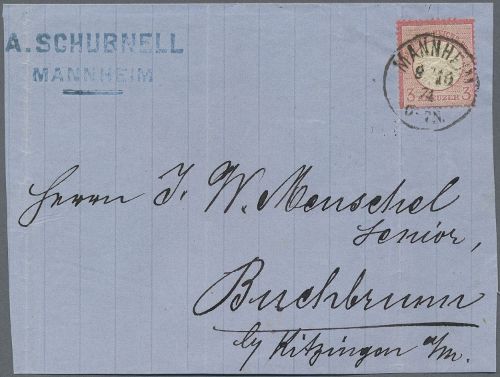 A. SCHURNELL
MANNHEIM
MANNHEIM
9 10
74
6-7N.
3 KREUZER 3
Herrn J. W. Menschel
senior,
Buchbrunn
by Kitzingen a/m.